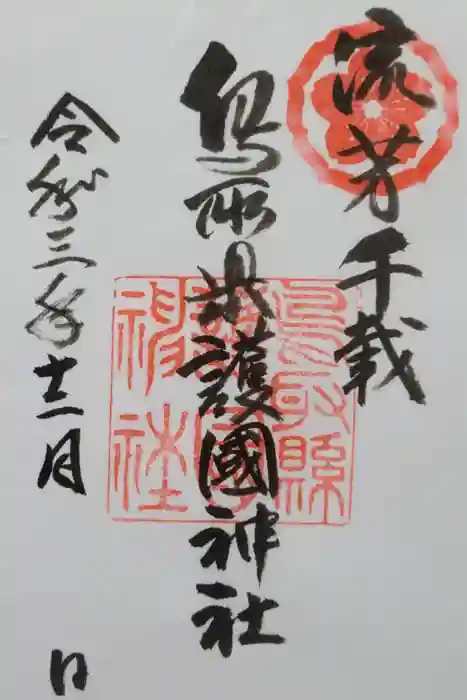 流芳千載
鳥取県護國神社
令和三年十二月 日
鳥取縣護國神社